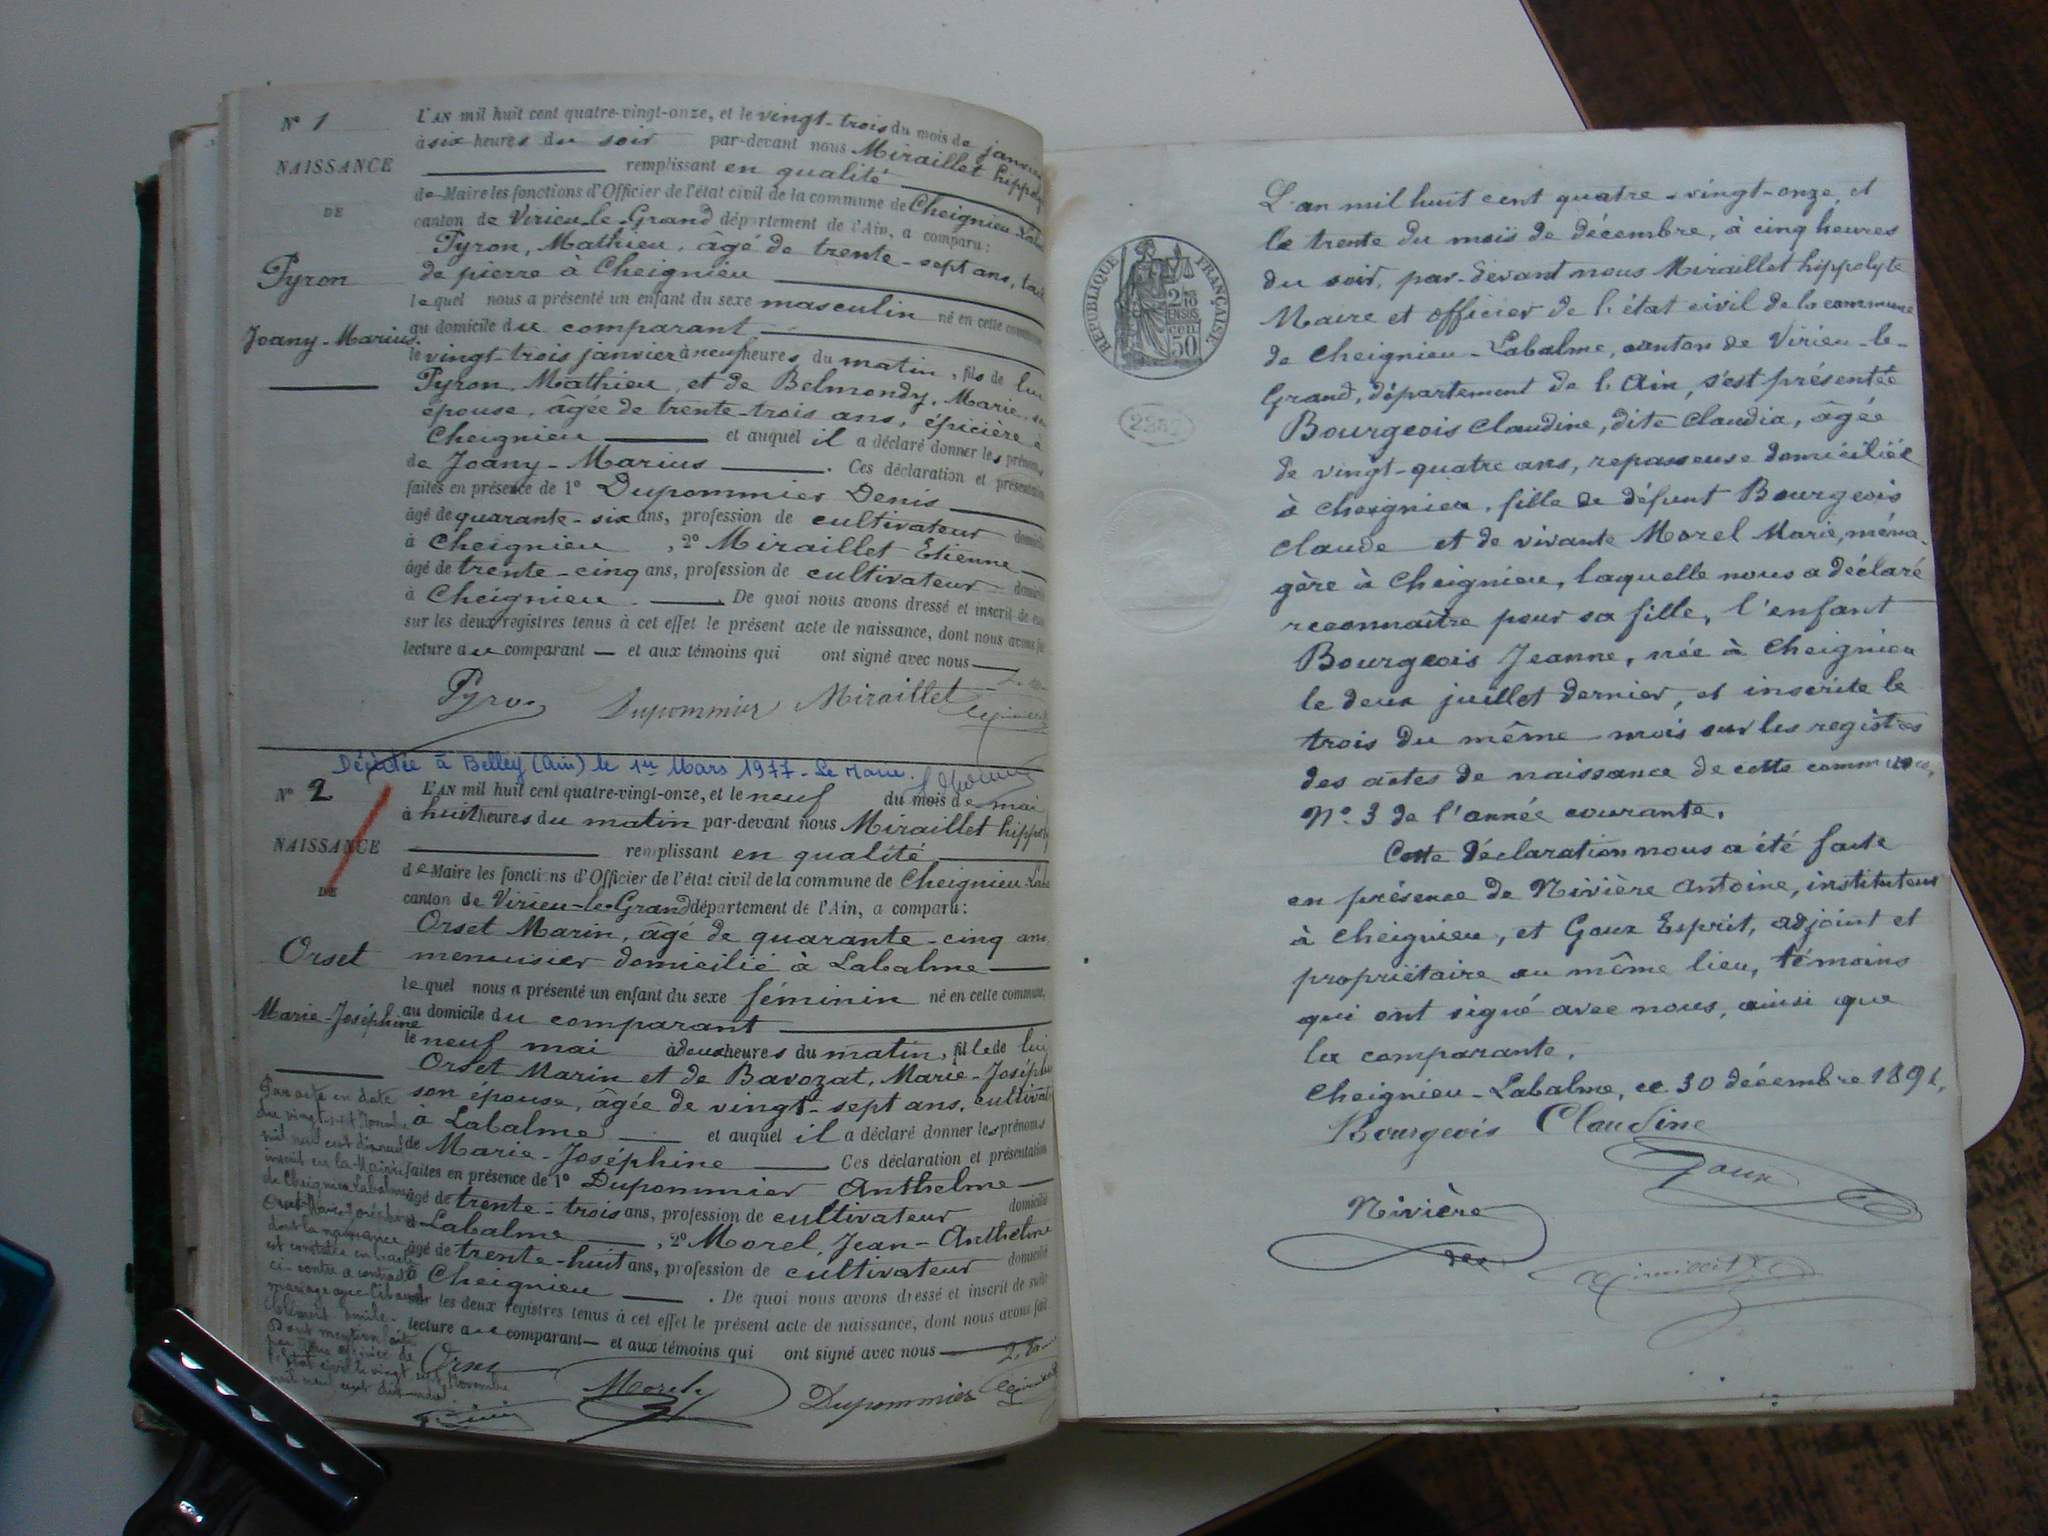 N° 1
NAISSANCE
DE
Pyron
Joany-Marius
L'AN mil huit cent quatre-vingt-onze, et le vingt-trois du mois de janvier
à six heures du soir par-devant nous Miraillet hippolyte
remplissant en qualité
de Maire les fonctions d'Officier de l'état civil de la commune de Cheignieu-Laba
canton de Virieu-le-Grand département de l'Ain, a comparu :
Pyron, Mathieu, âgé de trente-sept ans, tail
de pierre à Cheignieu
lequel nous a présenté un enfant du sexe masculin né en cette commune,
au domicile du comparant
le vingt-trois janvier à neuf heures du matin, fils de lui
Pyron, Mathieu, et de Belmondy, Marie, son
épouse, âgée de trente-trois ans, épicière à
Cheignieu et auquel il a déclaré donner les prénoms
de Joany-Marius. Ces déclaration et présentation
faites en présence de 1° Dupommier Denis
âgé de quarante-six ans, profession de cultivateur domicilié
à Cheignieu, 2° Miraillet Etienne
âgé de trente-cinq ans, profession de cultivateur domicilié
à Cheignieu. De quoi nous avons dressé et inscrit de suite
sur les deux registres tenus à cet effet le présent acte de naissance, dont nous avons fait
lecture au comparant et aux témoins qui ont signé avec nous
Pyron Dupommier Miraillet
Décédée à Belley (Ain) le 1er Mars 1977 - Le Maire.
N° 2
NAISSANCE
DE
Orset
Marie-Joséphine
L'AN mil huit cent quatre-vingt-onze, et le neuf du mois de mai
à huit heures du matin par-devant nous Miraillet hippolyte
remplissant en qualité
de Maire les fonctions d'Officier de l'état civil de la commune de Cheignieu-Laba
canton de Virieu-le-Grand département de l'Ain, a comparu :
Orset Marin, âgé de quarante-cinq ans,
menuisier domicilié à Labalme
lequel nous a présenté un enfant du sexe féminin né en cette commune,
au domicile du comparant
le neuf mai à deux heures du matin, fille de lui
Orset Marin et de Bavozat, Marie-Joséphine
son épouse, agée de vingt-sept ans, cultivat
à Labalme et auquel il a déclaré donner les prénoms
de Marie-Joséphine Ces déclaration et présentation
faites en présence de 1° Dupommier Anthelme
âgé de trente-trois ans, profession de cultivateur domicilié
à Labalme, 2° Morel, Jean-Anthelme
âgé de trente-huit ans, profession de cultivateur domicilié
à Cheignieu. De quoi nous avons dressé et inscrit de suite
sur les deux registres tenus à cet effet le présent acte de naissance, dont nous avons fait
lecture au comparant et aux témoins qui ont signé avec nous
Orset Morel Dupommier
Par acte en date
du vingt-sept Novembre
mil neuf cent dix neuf
inscrit en la Mairie
de Cheignieu Labalme
Orset Marie Joséphine
dont la naissance
est constatée en l'acte
ci-contre a contracté
mariage avec
Clément Emile.
Dont mention faite
par nous officier de
l'Etat civil le vingt sept Novembre
mil neuf cent dix-neuf
RÉPUBLIQUE FRANÇAISE
2/10
EN SUS
50
2257
L'an mil huit cent quatre-vingt-onze, et
le trente du mois de décembre, à cinq heures
du soir, par-devant nous Miraillet hippolyte
Maire et officier de l'état civil de la commune
de Cheignieu-Labalme, canton de Virieu-le-
Grand, département de l'Ain, s'est présentée
Bourgeois Claudine, dite Claudia, âgée
de vingt-quatre ans, repasseuse domiciliée
à Cheignieu, fille de défunt Bourgeois
Claude et de vivante Morel Marie, ména-
gère à Cheignieu, laquelle nous a déclaré
reconnaître pour sa fille, l'enfant
Bourgeois Jeanne, née à Cheignieu
le deux juillet dernier, et inscrite le
trois du même mois sur les registres
des actes de naissance de cette commune,
N° 3 de l'année courante.
Cette déclaration nous a été faite
en présence de Nivière Antoine, instituteur
à Cheignieu, et Goux Esprit, adjoint et
propriétaire au même lieu, témoins
qui ont signé avec nous, ainsi que
la comparante.
Cheignieu-Labalme, ce 30 décembre 1891.
Bourgeois Claudine
Goux
Nivière
Miraillet